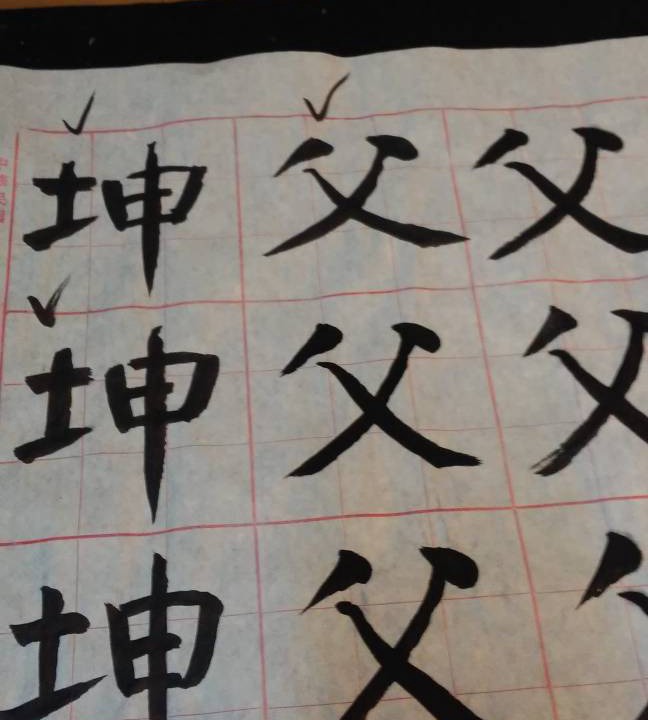 坤父父
坤父父
坤父